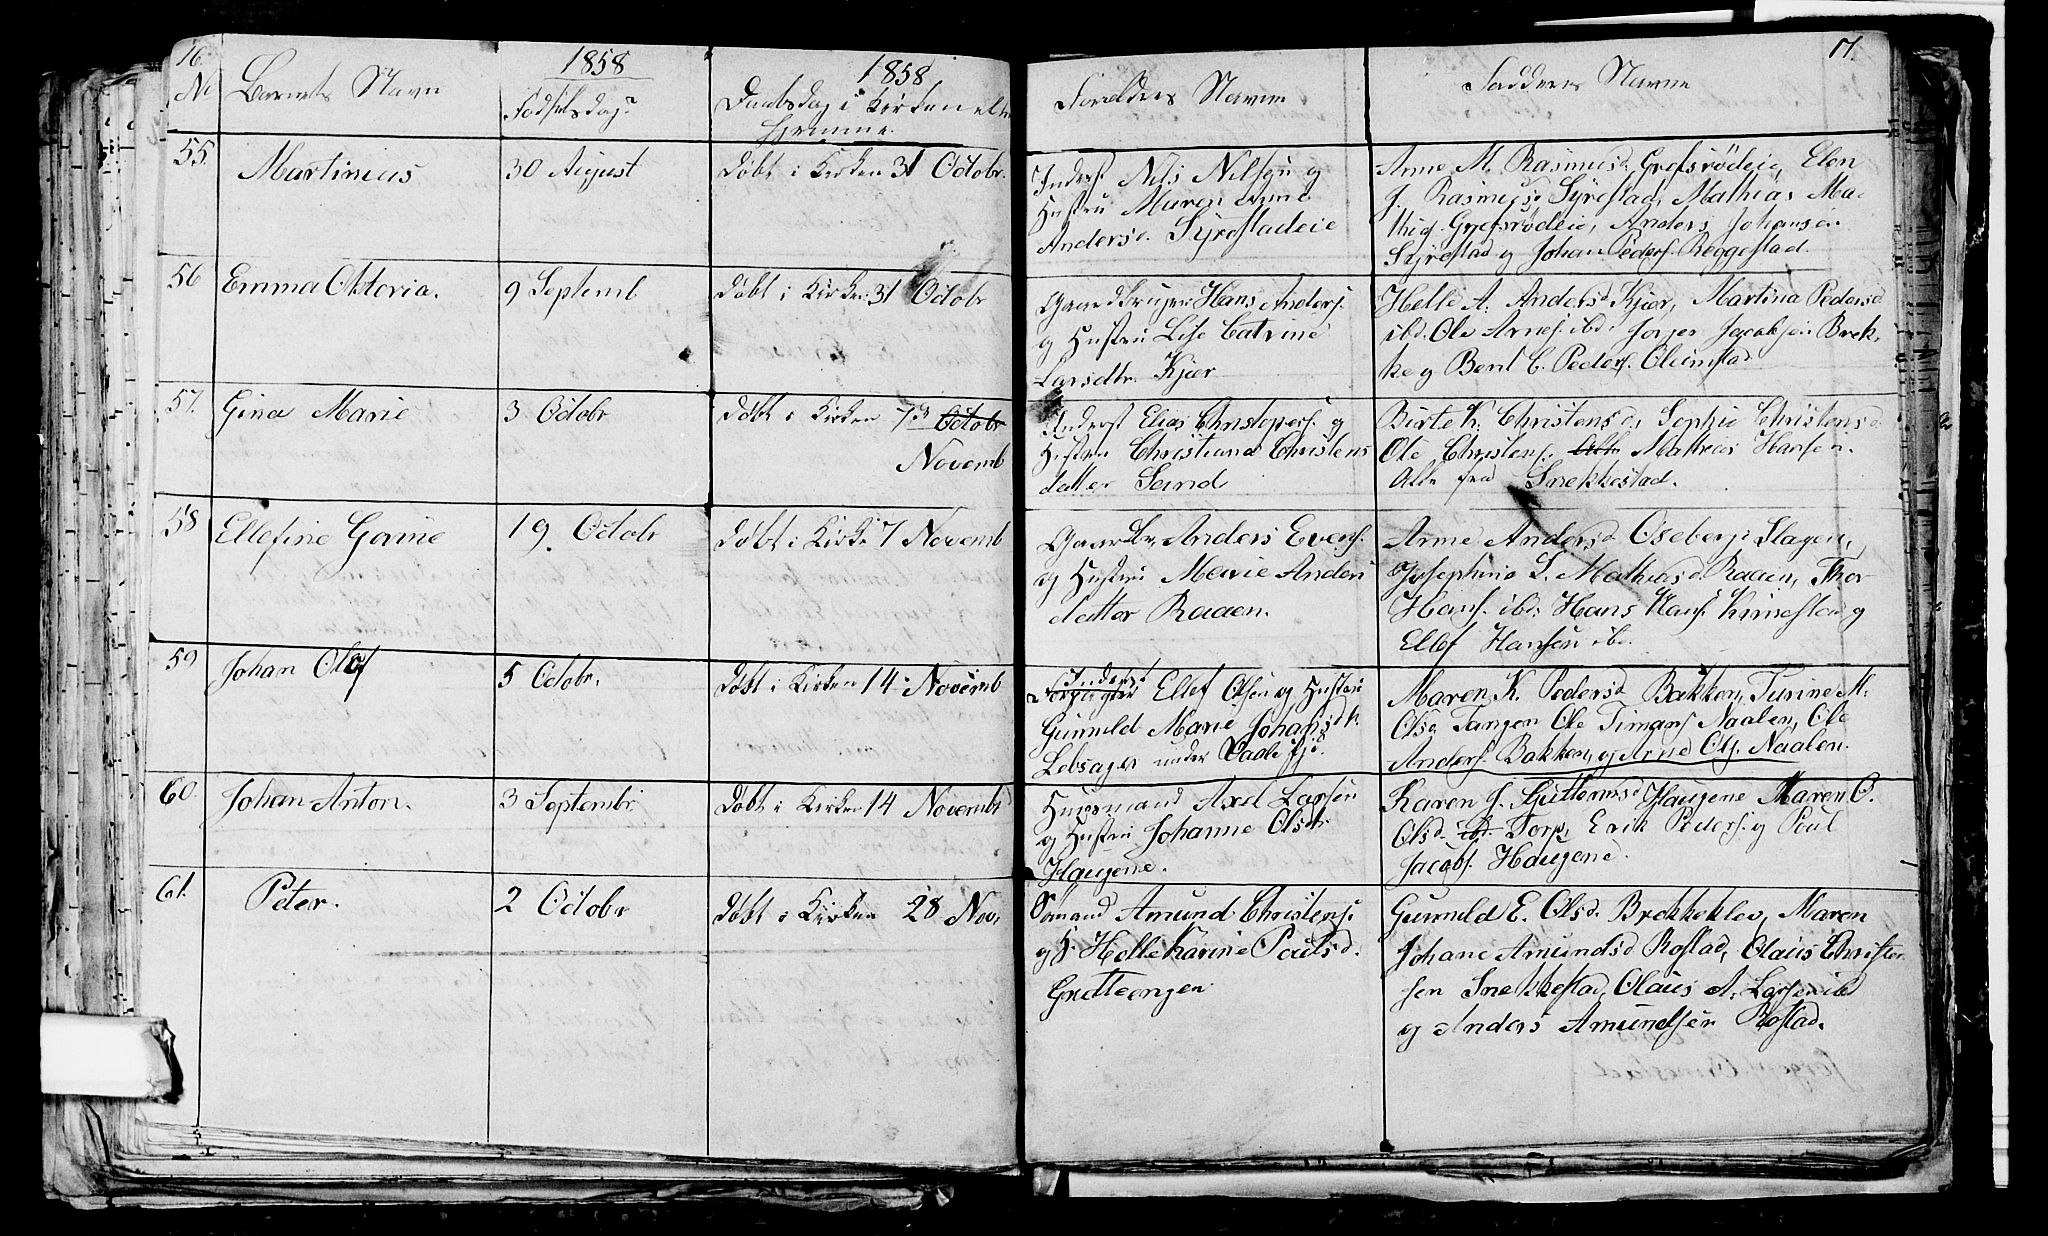 16.
17.
No
Barnets Navn
1858
Fødselsdag
1858
Daabsdag i Kirken eller
hjemme.
Forældres Navne
Faddernes Navne
55.
Martinius
30 August
Døbt i Kirken 31 Octobr.
Inderst Nils Nilsen og
Hustru Maren Anne
Andersd. Syrestadeie
Anne M. Rasmusd. Grefsrødeie, Elen
J. Rasmusd Syrestad, Mathias Ma-
this. Grefsrødeie, Anders Johansen
Syrestad og Johan Peders. Reggestad.
56
Emma Oktovia.
9 Septemb
Døbt i Kirken 31 Octobr
Gaardbruger Hans Anders.
og Hustru Lise Catrine
Larsdtr. Kjær
Helle A. Andersd Kjær, Martina Pedersd
ibd. Ole Arnes. ibd. Jørger Jacobsen Brek-
ke og Bent C. Peders. Olumstad
57.
Gina Marie
3 Octobr
Døbt i Kirken 7d Octobr
Novemb
Inderst Elias Christophers. og
Hustru Christiana Christens
datter Sand
Birte K. Christensd., Sophie Christensd.
Ole Christens. Alle Mathias Hansen.
Alle fra Snekkestad.
58
Ellefine Gorine
19 Octobr
Døbt i Kirke 7 Novemb
Gaardbr. Anders Evens.
og Hustru Marie Anders
datter Raaen.
Anne Andersd Oseberg i Slagen,
Josephine L. Mathiasd Raaen, Thor
Hans. ibd. Hans Hans. Knnestad og
Ellef Hansen ibd.
59
Johan Olaf
5 Octobr.
Døbt i Kirken 14 Novemb
Inderst
Forpagter Ellef Olsen og Hustru
Gunnild Marie Johansdtr.
Lebsager under Vadlefjd.
Maren K. Pedersd Bakken, Turine M.
Olsd Tangen Ole Timans. Naalen, Ole
Anders. Bakken, og Arne Ols. Naalen.
60.
Johan Anton.
3 Septembr
Døbt i Kirken 14 Novembr
Huusmand Axel Larsen
og Hustru Johanne Olsdtr
Haugene.
Karen J. Guttormsd Haugene Maren O.
Olsd. ibd. Torp, Erik Peders. og Poul
Jacobs. Haugene.
61.
Peter.
2 Octobr
Døbt i Kirken 28 Nov.
Sømand Amund Christens.
og H. Helle Karine Poulsd.
Grette engen
Gunnild E. Olsd. Brekkeklev, Maren
Johane Amundsd Rostad, Olaus Christen-
sen Snekkestad, Olaus A. Larsen ibd
og Anders Amundsen Rostad.